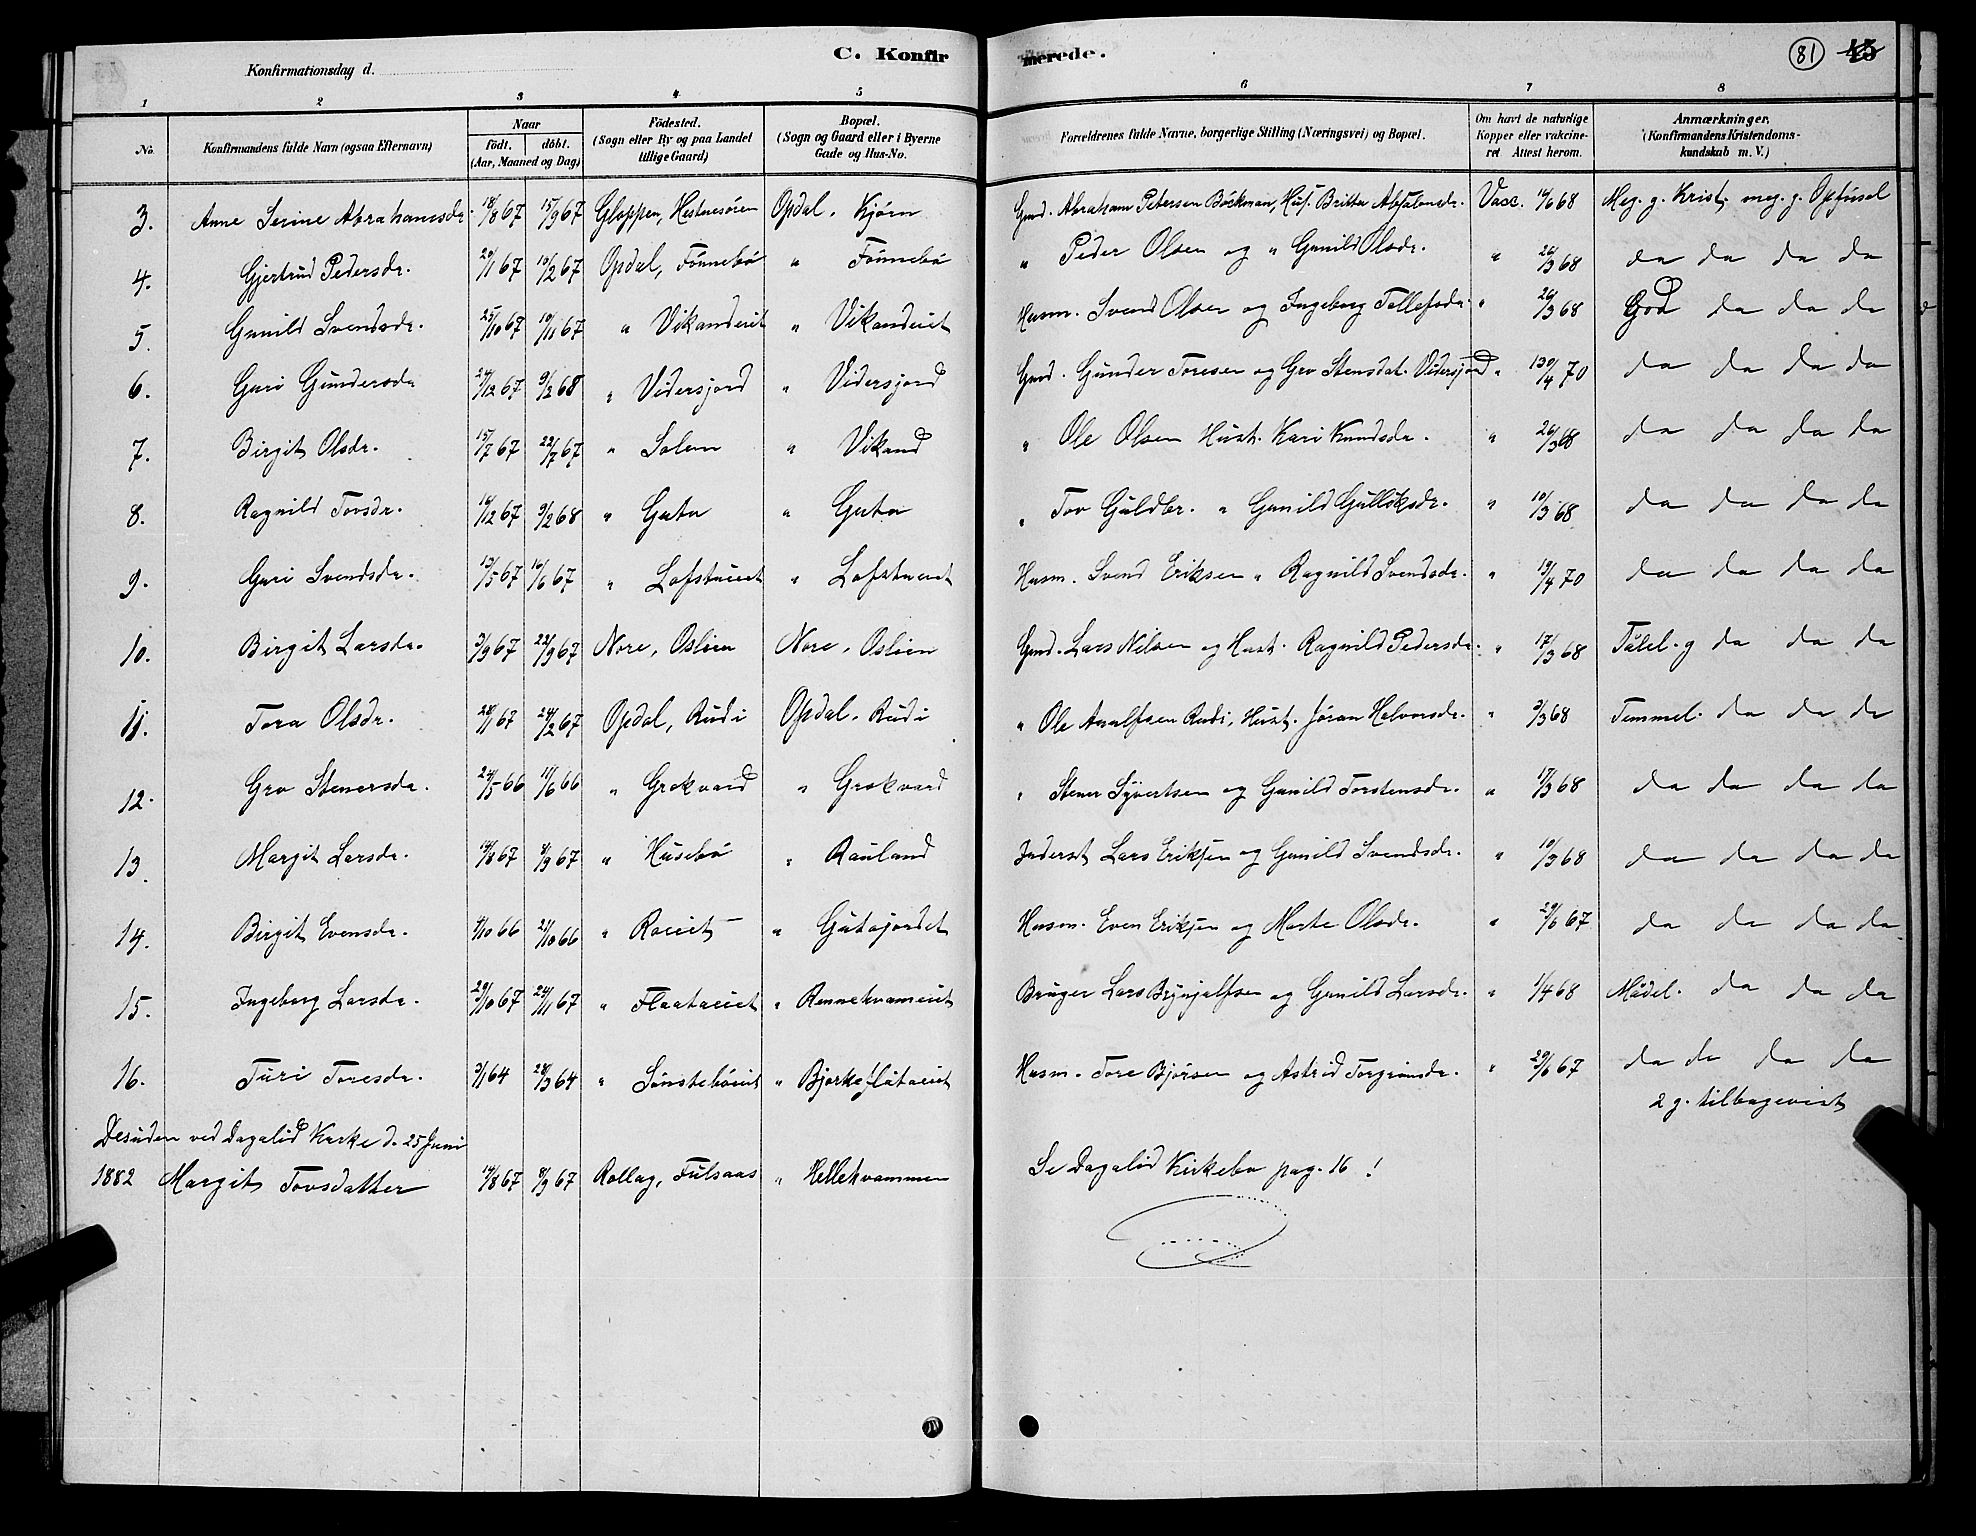 C. Konfirmerede.
81
45
Konfirmationsdag d.
1 2 3 4 5 6 7 8
No.
Konfirmandens fulde Navn (ogsaa Efternavn)
Naar
födt. döbt.
(Aar, Maaned og Dag)
Födested.
(Sogn eller By og paa Landet
tillige Gaard)
Bopæl.
(Sogn og Gaard eller i Byerne
Gade og Hus-No.
Forældrenes fulde Navne, borgerlige Stilling (Næringsvei) og Bopæl.
Om havt de naturlige
Kopper eller vakcine-
ret Attest herom.
Anmærkninger,
(Konfirmandens Kristendoms-
kundskab m. V.)
3. Anne Serine Abrahamsdr. 18/8 67 15/9 67 Gloppen, Hestnesören Opdal. Kjörn Gmd. Abraham Petersen Böckman, Hus. Britta Absalonsdr. Vacc. 14/6 68 Meg. g. Krist. meg. g. Opförsel
4. Gjertrud Pedersdr. 20/1 67 10/2 67 Opdal, Fönnebö " Fönnebö " Peder Olsen og " Gunild Olsdr. " 26/3 68 da da da da
5. Gunild Svendsdr. 25/10 67 10/11 67 " Vikandeiet " Vikandeiet Husm. Svend Olsen og Ingeborg Tollefsdr. " 26/3 68 God da da da
6. Guri Gundersdr 24/12 67 9/2 68 " Vidersjord " Vidersjord Gmd. Gunder Toresen og Gro Stensdat. Vidersjord " 130/4 70 da da da da
7. Birgit Olsdr. 15/7 67 22/7 67 " Solem " Vikand " Ole Olsen Hust. Kari Knudsdr. " 26/3 68 da da da da
8. Ragnild Tovsdr. 16/12 67 9/2 68 " Guta " Guta " Tov Guldbr. " Gunild Gulliksdr. " 10/3 68 da da da da
9. Guri Svendsdr. 13/5 67 16/6 67 " Lofstueiet " Lofstueiet Husm. Svend Eriksen " Ragnild Svendsdr. " 19/4 70 da da da da
10. Birgit Larsdr. 3/9 67 22/9 67 Nore, Oslien Nore, Oslien Gmd. Lars Nilsen og Hust. Ragnild Pedersdr. " 17/3 68 Tålel. g da da da
11. Tora Olsdr. 28/1 67 24/2 67 Opdal, Rudi Opdal. Rudi " Ole Arnulfsen Rudi, Hust. Jöran Halvorsdr. " 3/3 68 Temmel. da da da
12. Gro Stenersdr. 24/5 66 11/6 66 " Grokvard " Grokvard " Stener Syvertsen og Gunild Torstensdr. " 17/3 68 da da da da
13. Margit Larsdr. 14/8 67 8/9 67 " Husebö " Rauland Inderst Lars Eriksen og Gunild Svendsdr. " 10/3 68 da da da da
14. Birgit Evensdr. 4/10 66 21/10 66 " Roeiet " Gutajordet Husm. Even Eriksen og Marte Olsdr. " 29/6 67 da da da da
15. Ingeborg Larsdr. 29/10 67 24/11 67 " Flaataeiet " Rennekvameiet Bruger Lars Brynjulfsen og Gunild Larsdr. " 1/4 68 Mådel. da da da
16. Turi Toresdr. 3/1 64 28/3 64 " Sönsteböeiet " Bjerkeflåtaeiet Husm. Tore Bjørsen og Astrid Torgrimsdr. " 29/6 67 da da da da
2 g. tilbagevist
Desuden ved Dagalid Kirke d. 25 Juni
1882 Margit Tovsdatter 14/8 67 8/9 67 Rollag, Fulsaas " Hellekvammen Se Dagalid Kirkebo pag. 16!